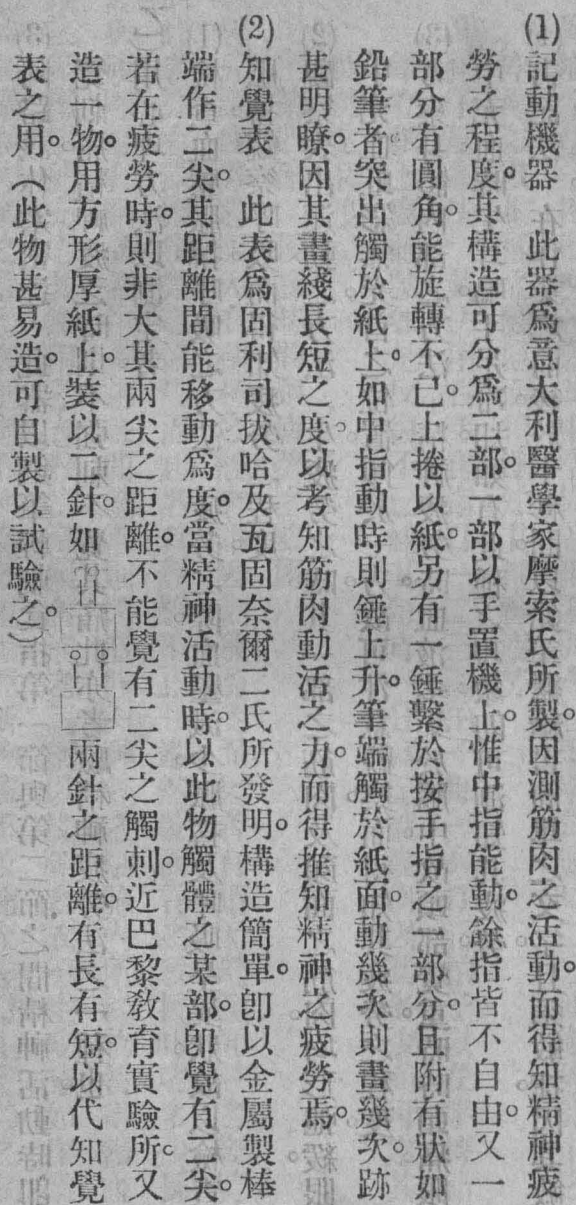 (1) 記動機器　此器爲意大利醫學家摩索氏所製。因測筋肉之活動。而得知精神疲
勞之程度。其構造可分爲二部。一部以手置機上。惟中指能動。餘指皆不自由。又一
部分有圓角。能旋轉不已。上捲以紙。另有一錘繫於按手指之一部分。且附有狀如
鉛筆者。突出觸於紙上。如中指動時則錘上升。筆端觸於紙面。動幾次則畫幾次。跡
甚明瞭。因其畫綫長短之度。以考知筋肉動活之力。而得推知精神之疲勞焉。
(2) 知覺表　此表爲固利司拔哈及瓦固奈爾二氏所發明。構造簡單。卽以金屬製棒
端作二尖。其距離間能移動爲度。當精神活動時。以此物觸體之某部。卽覺有二尖。
若在疲勞時。則非大其兩尖之距離。不能覺有二尖之觸刺。近巴黎敎育實驗所。又
造一物。用方形厚紙上。裝以二針。如　兩針之距離。有長有短。以代知覺
表之用。（此物甚易造。可自製以試驗之。）